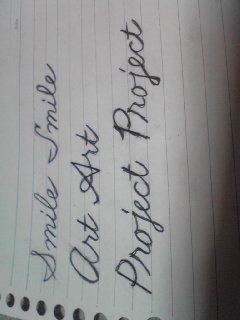 Smile Smile
Art Art
Project Project